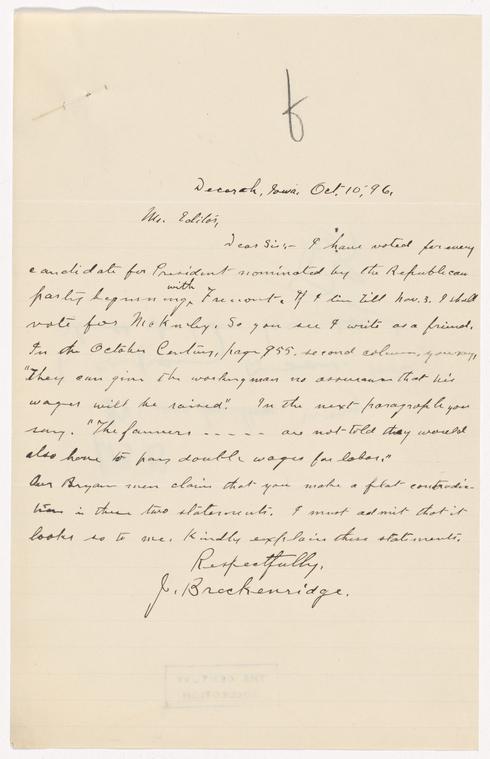 Decorah, Iowa. Oct. 10, '96.
Mr. Editor,
Dear Sir:- I have voted for every
candidate for President nominated by the Republican
party beginning with Fremont. If I live till Nov. 3. I shall
vote for McKinley. So you see I write as a friend.
In the October Century, page 955. second column, you say,
"They can give the workingman no assurance that his
wages will be raised". In the next paragraph you
say. "The farmers ----- are not told they would
also have to pay double wages for labor."
Our Bryan men claim that you make a flat contradic-
tion in these two statements. I must admit that it
looks so to me. Kindly explain these statements.
Respectfully,
J. Breckenridge.
THE CENTURY
COLLECTION